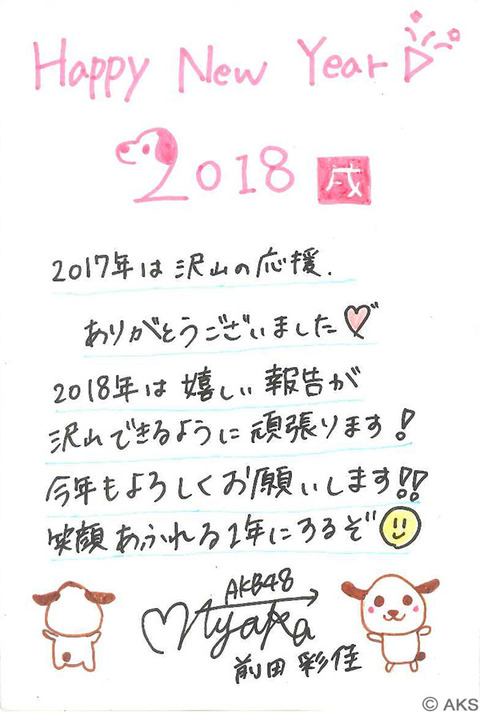 Happy New Year
2018 戌
2017年は沢山の応援、
ありがとうございました
2018年は嬉しい報告が
沢山できるように頑張ります!
今年もよろしくお願いします!!
笑顔あふれる1年にするぞ
AKB48
Ayaka
前田 彩佳
© AKS